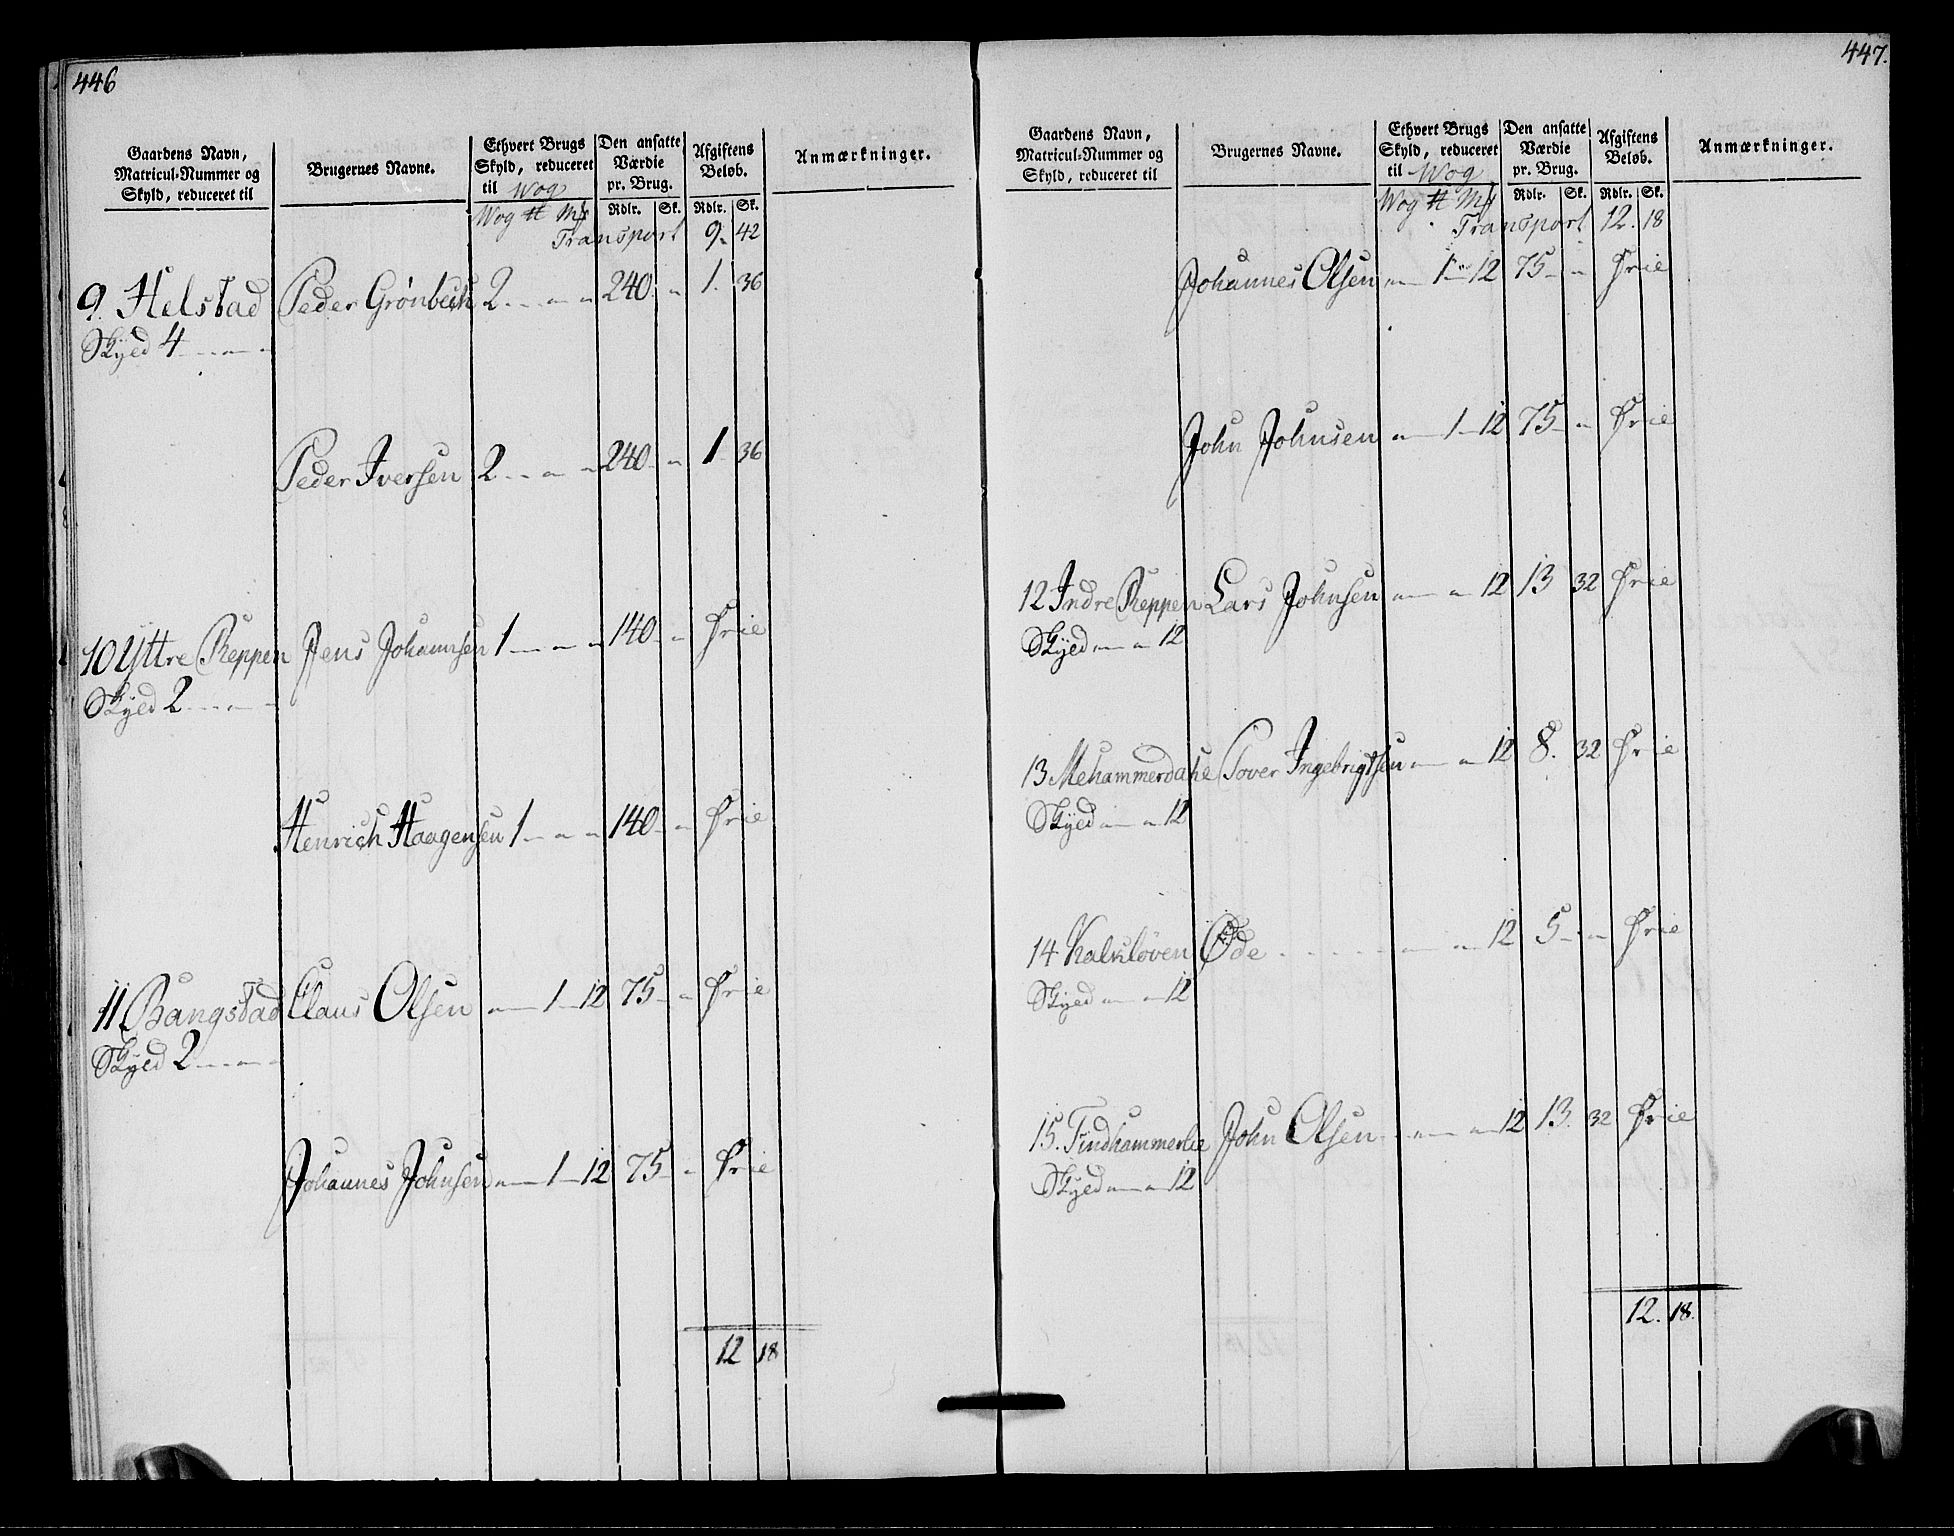 446
Gaardens Navn, Matricul-Nummer og Skyld, reduceret til
Brugernes Navne.
Ethvert Brugs Skyld, reduceret til Wog
Den ansatte Værdie pr. Brug.
Afgiftens Beløb.
Anmærkninger.
Wog ℔ Mk Rdlr. Sk. Rdlr. Sk.
Transport 9. 42
9. Helstad Peder Grønbech 2 - - - 240 - 1. 36
Skyld 4 - - -
Peder Iversen 2 - - - 240 - 1 36
10 Yttre Reppen Jens Johannsen 1 - - - 140 - Frie
Skyld 2 - - -
Henrich Haagensen 1 - - - 140 - Frie
11 Bangstad Claus Olsen - 1 - 12 75 - Frie
Skyld 2 - - -
Johannes Johnsen - 1 - 12 75 - Frie
12 18
447.
Gaardens Navn, Matricul-Nummer og Skyld, reduceret til
Brugernes Navne.
Ethvert Brugs Skyld, reduceret til Wog
Den ansatte Værdie pr. Brug.
Afgiftens Beløb.
Anmærkninger.
Wog ℔ Mk Rdlr. Sk. Rdlr. Sk.
Transport 12. 18
Johannes Olsen - 1 - 12 75 - Frie
John Johnsen - 1 - 12 75 - Frie
12 Indre Reppen Lars Johnsen - - 12 13 32 Frie
Skyld - - 12
13 Mehammerdahl Tover Ingebrigtsen - - 12 8. 32 Frie
Skyld - - 12
14 Kalkløven Øde - - 12 5 - Frie
Skyld - - 12
15. Tindhammerlie John Olsen - - 12 13. 32 Frie
Skyld - - 12
12. 18.